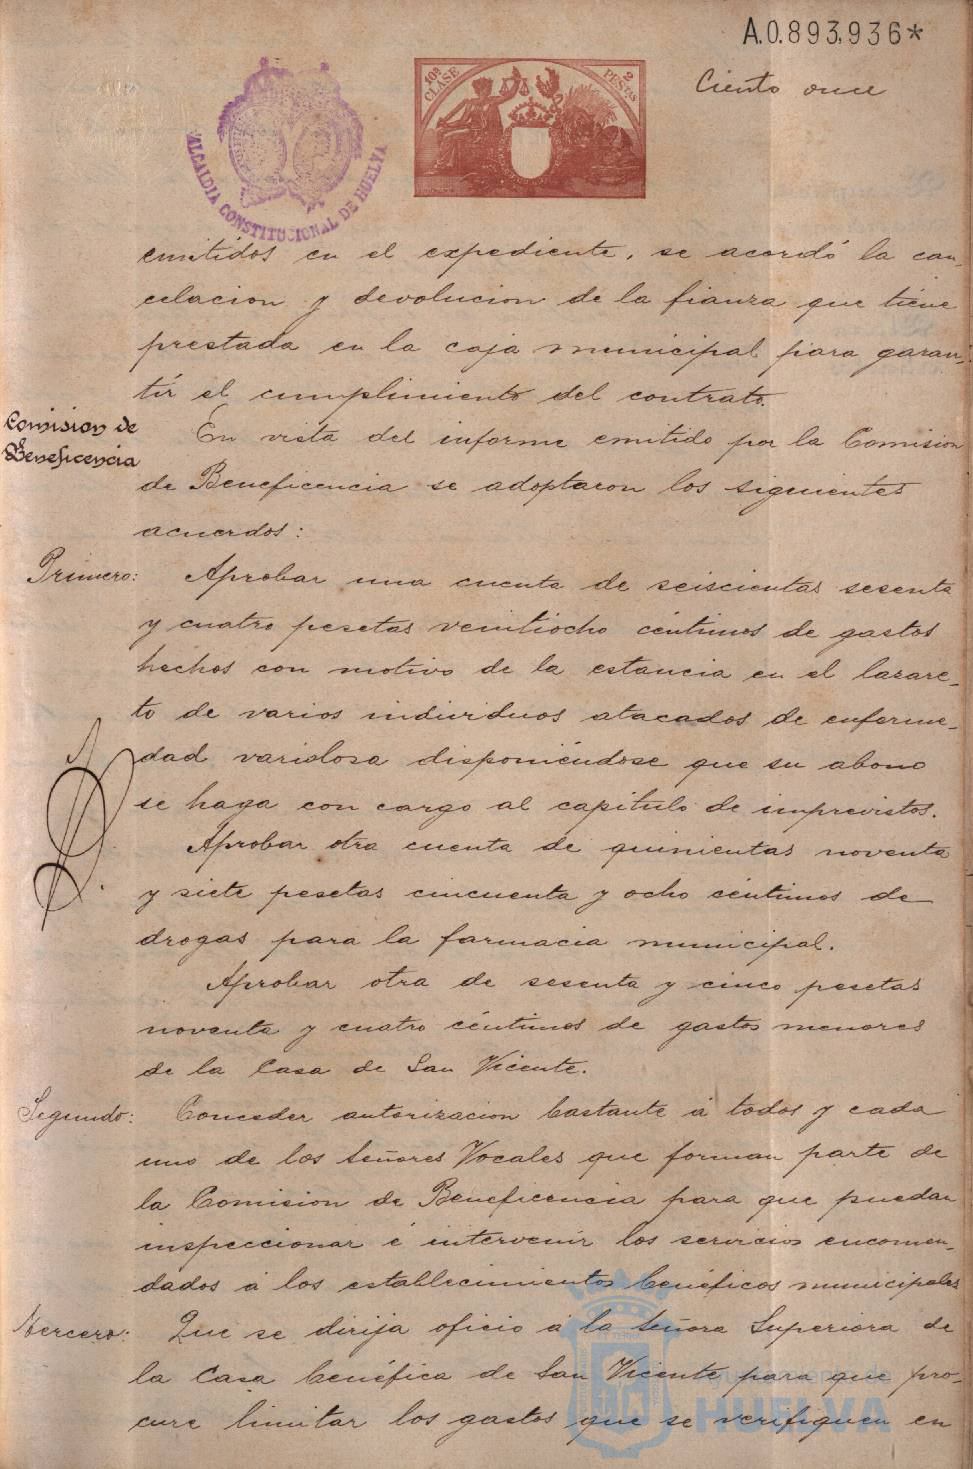 A.0.893,936*
Ciento once
10ª CLASE
2 PESTAS
ALCALDIA CONSTITUCIONAL DE HUELVA
emitidos en el expediente, se acordó la can-
celacion y devolucion de la fianza que tiene
prestada en la caja municipal para garan-
tir el cumplimiento del contrato.
Comision de
Beneficencia
En vista del informe emitido por la Comision
de Beneficencia se adoptaron los siguientes
acuerdos:
Primero: Aprobar una cuenta de seiscientas sesenta
y cuatro pesetas veintiocho céntimos de gastos
hechos con motivo de la estancia en el lazare-
to de varios individuos atacados de enferme-
dad variolosa disponiéndose que su abono
se haga con cargo al capitulo de imprevistos.
Aprobar otra cuenta de quinientas noventa
y siete pesetas cincuenta y ocho céntimos de
drogas para la farmacia municipal.
Aprobar otra de sesenta y cinco pesetas
noventa y cuatro céntimos de gastos menores
de la Casa de San Vicente.
Segundo: Conceder autorizacion bastante á todos y cada
uno de los Señores Vocales que forman parte de
la Comision de Beneficencia para que puedan
inspeccionar é intervenir los servicios encomen-
dados á los establecimientos benéficos municipales
Tercero: Que se dirija oficio á la Señora Superiora de
la Casa benéfica de San Vicente para que pro-
cure limitar los gastos que se verifiquen en
Ayuntamiento de
HUELVA